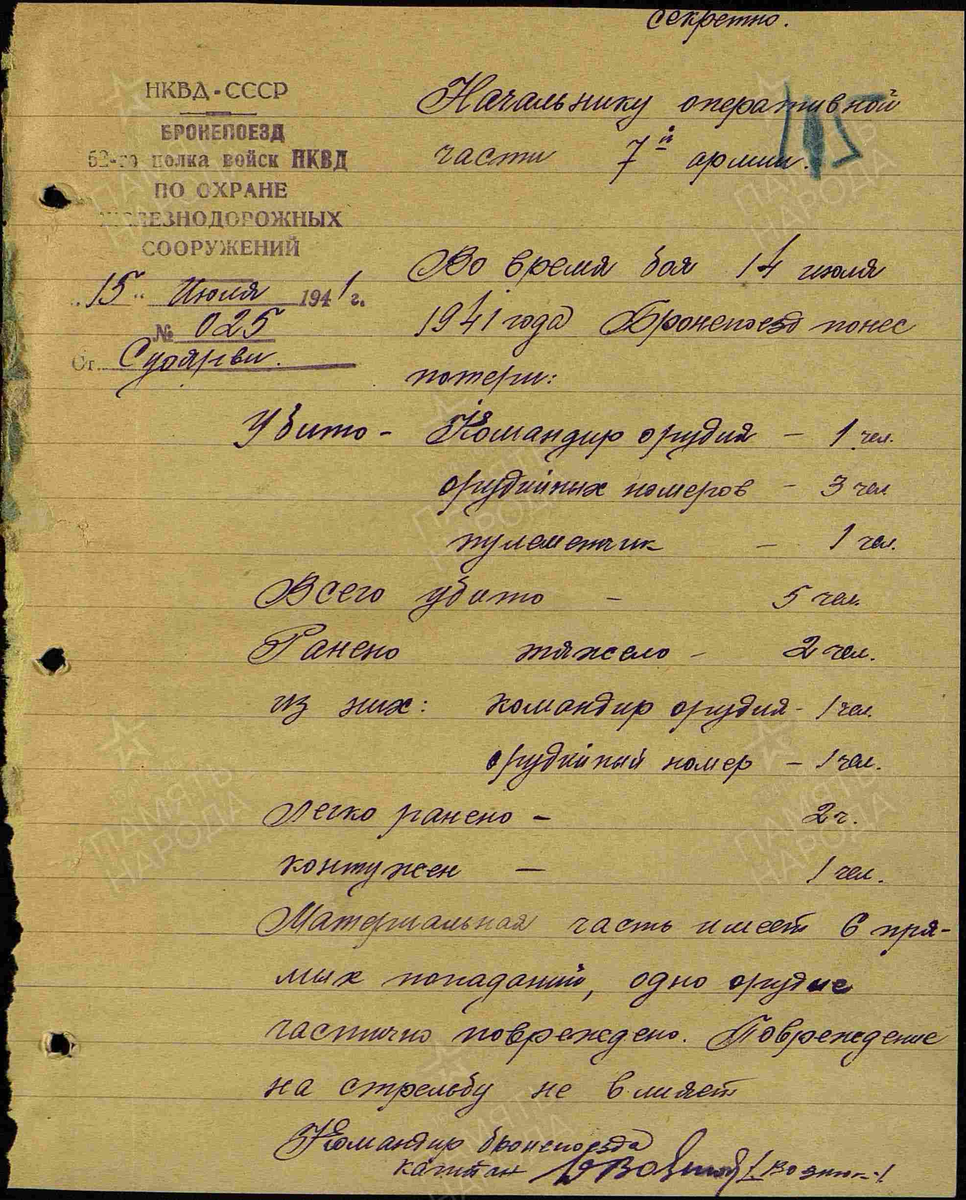 секретно.
НКВД-СССР
БРОНЕПОЕЗД
62-го полка войск НКВД
ПО ОХРАНЕ
ЖЕЛЕЗНОДОРОЖНЫХ
СООРУЖЕНИЙ
„15" Июля 1941 г.
№ 025
Ст. Суоярви.
Начальнику оперативной
части 7й армии.
Во время боя 14 июля
1941 года Бронепоезд понес
потери:
Убито - Командир орудия - 1 чел.
орудийных номеров - 3 чел
пулеметчик - 1 чел.
Всего убито - 5 чел.
Ранено тяжело - 2 чел.
из них: командир орудия - 1 чел.
орудийный номер - 1 чел.
Легко ранено - 2 ч.
контужен - 1 чел.
Материальная часть имеет 6 пря-
мых попаданий, одно орудие
частично повреждено. Повреждение
на стрельбу не влияет
Командир бронепоезда
капитан
ПАМЯТЬ НАРОДА